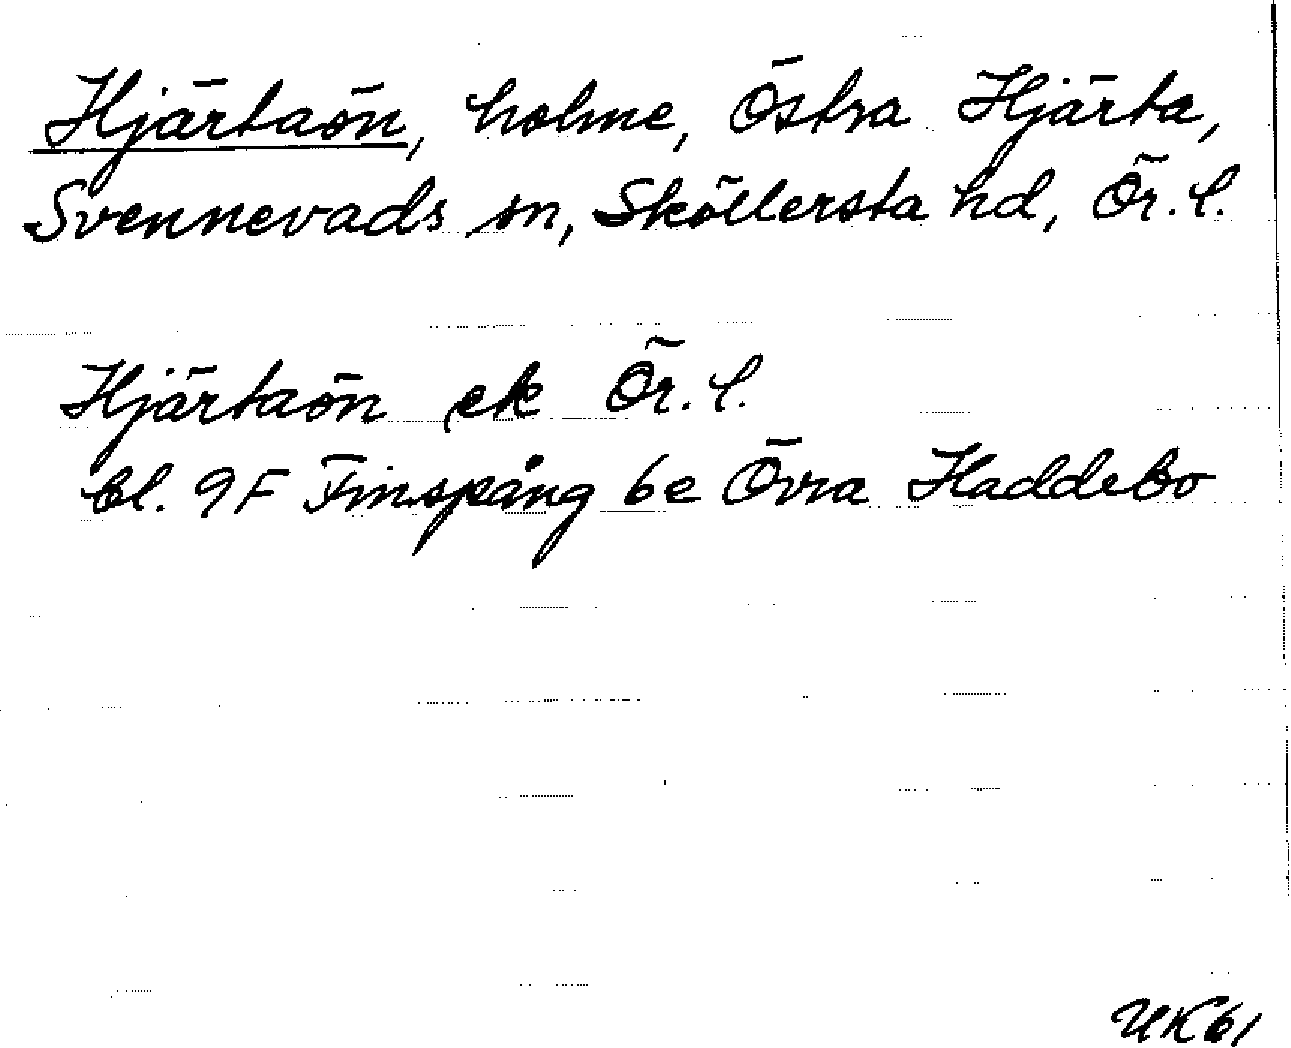 Hjärtaön, holme, Östra Hjärta,
Svennevads sn, Sköllersta hd, Ör. l.
Hjärtaön ek Ör. l.
bl. 9F Finspång 6e Övra Haddebo
UK61